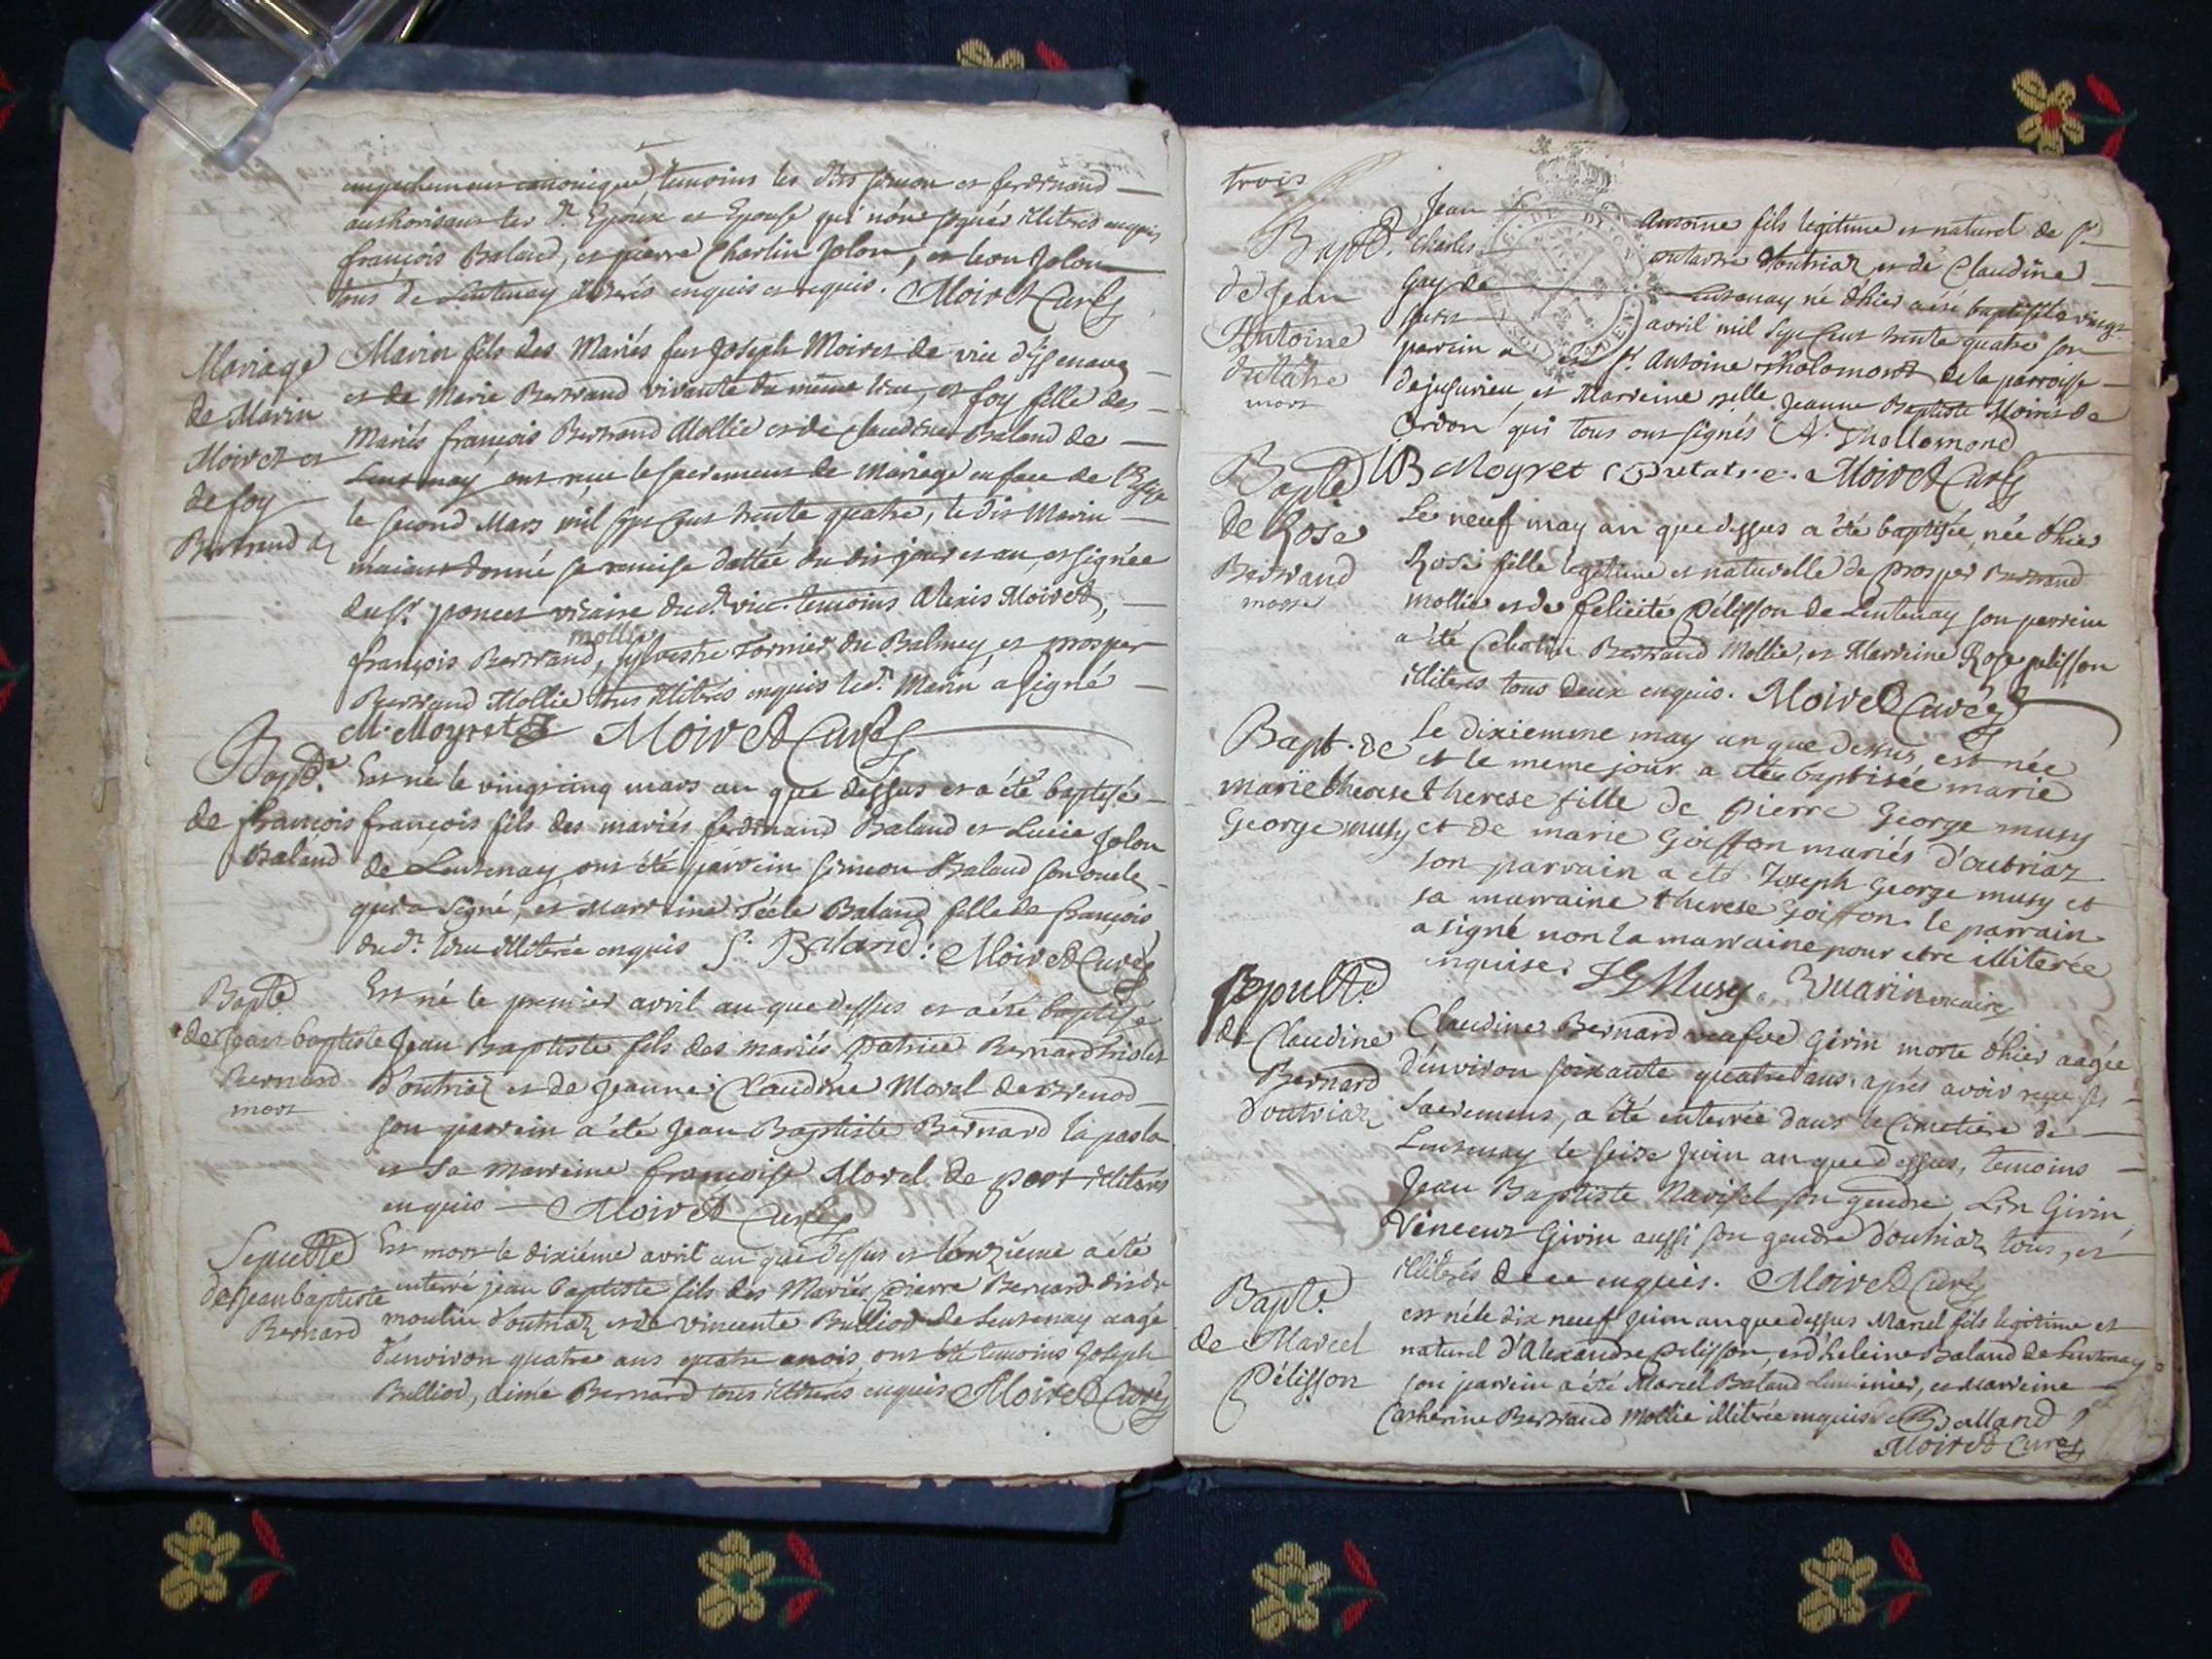 empechement canonique temoins les dits simeon et ferdinand
authorisant les dt Epoux et Epouse qui n'ont signés illiterés enquis
françois Baland, et pierre Charlin Jolon, et leon Jolon
tous de Lentenay illiterés enquis et requis. Moiret Curé
Mariage
de Marin
Moiret et
de foy
Bertrand
Marin fils des Mariés feu Joseph Moiret de vieu d'Issenave
et de Marie Bertrand vivante du même lieu, et foy fille des
Mariés françois Bertrand Mollie et de claudine Baland de
Lentenay ont reçu le sacrement de Mariage en face de l'Eglise
le second Mars mil sept cent trente quatre, le dit Marin
m'aiant donné sa remise dattée du dit jour et an, et signée
du Sr. poncet vicaire dud. vieu. temoins Alexis Moiret,
françois Bertrand mollie, sylvestre tornier du Balmey, et prosper
Bertrand Mollie tous illiterés enquis led. Marin a signé
M. Moyret Moiret Curé
Bapt.
de françois
Baland
Est né le vingt cinq mars an que dessus et a été baptisé
françois fils des mariés ferdinand Baland et Lucie Jolon
de Lentenay, ont été parrein simeon Baland son oncle
qui a signé, et marreine Técle Baland fille de françois
dud. lieu illiterée enquis S. Baland: Moiret Curé
Bapte
de Jean baptiste
Bernard
mort
Est né le premier avril an que dessus et a été baptisé
Jean Baptiste fils des mariés patrice Bernard
d'outriaz et de Jeanne Claudine Morel de
son parrein a été Jean Baptiste Bernard
et sa marreine françoise Morel de port illiterés
enquis Moiret Curé
Sepulte
de Jean baptiste
Bernard
Est mort le dixiéme avril an que dessus et l'onziéme a été
enterré jean baptiste fils des Mariés pierre Bernard dit du
moulin d'outriaz et de vincente Bulliod de Lentenay aagé
d'environ quatre ans quatre mois, ont été temoins Joseph
Bulliod, aimé Bernard tous illiterés enquis Moiret Curé
trois
Bapt.
de Jean
Antoine
dutatre
mort
Jean Antoine fils legitime et naturel de Sr
Charles d'outriaz et de Claudine
Gay de Lentenay né d'hier a été baptisé le vingt
avril mil sept cent trente quatre son
parrein a Sr. Antoine Tholomond de la parroisse
de jujurieu, et Marreine delle Jeanne Baptiste Moiret de
Cerdon qui tous ont signés A. Thollomond
JB Moyret Moiret Curé
Bapte
de Rose
Bertrand
morte
Le neuf may an que dessus a été baptisée, née d'hier
Rose fille legitime et naturelle de prosper Bertrand
mollie et de felicité Pélisson de Lentenay son parrein
a été Bertrand Mollie, et Marreine Rose pelisson
illiterés tous deux enquis. Moiret Curé
Bapt. de
marie therese
George musy
Le dixiemme may an que dessus est née
et le meme jour a été baptisée marie
therese fille de pierre George musy
et de marie Goiffon mariés d'outriaz
son parrain a eté Joseph George musy et
sa marraine therese Goiffon. le parrain
a signé non la marraine pour etre illiterée
inquise. JG Musy. Vuarin vicaire
Sepulte
de Claudine
Bernard
d'outriaz
Claudine Bernard veufve Girin morte d'hier aagée
d'environ soixante quatre ans, après avoir reçu ses
sacremens, a été enterrée dans le cimetiere de
Lentenay le seize Juin an que dessus, temoins
Jean Baptiste Navisel son gendre, Lin Girin
Vincent Girin aussi son gendre d'outriaz tous, et
illiterés de ce enquis. Moiret Curé
Bapte.
de Marcel
Pélisson
est né le dix neuf Juin an que dessus Marcel fils legitime et
naturel d'Alexandre Pelisson, et d'heleine Baland de Lentenay
son parrein a été Marcel Baland, et marreine
Catherine Bertrand Mollie illiterée enquise Balland
Moiret Curé